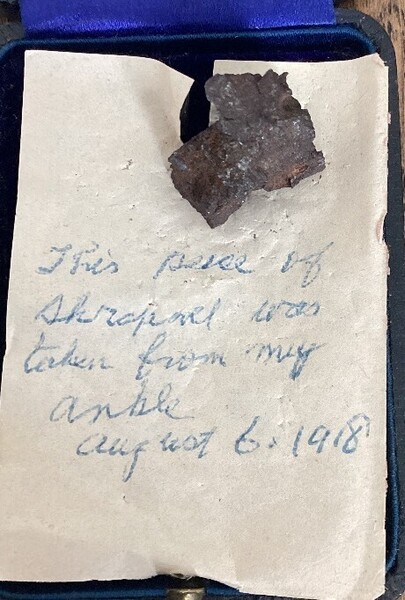 This peace of
Shrapnel was
taken from my
ankle
august 6. 1918